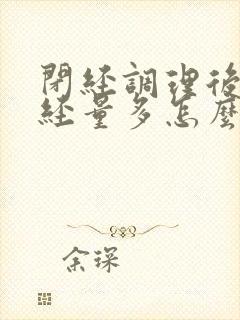 閉經調理後
經量多怎麼
余琛